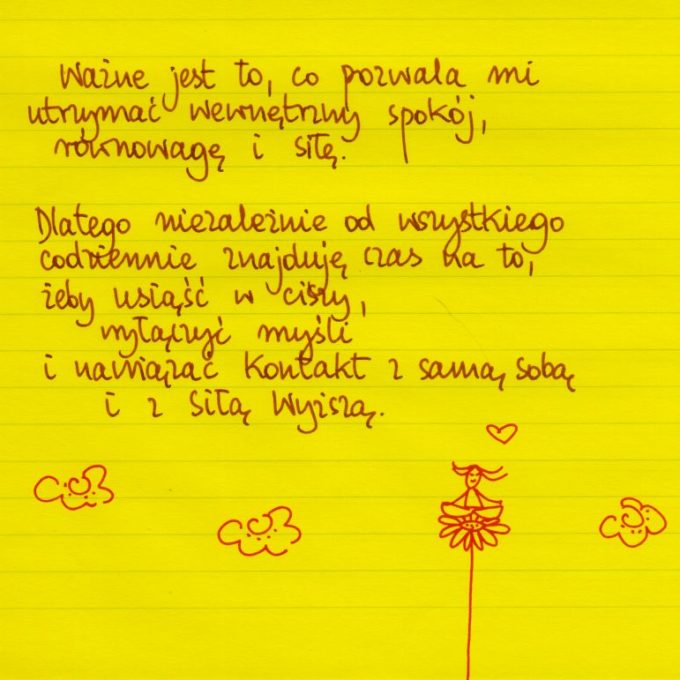 Ważne jest to, co pozwala mi
utrzymać wewnętrzny spokój,
równowagę i siłę.
Dlatego niezależnie od wszystkiego
codziennie znajduję czas na to,
żeby usiąść w ciszy,
wyłączyć myśli
i nawiązać kontakt z samą sobą
i z Siłą Wyższą.